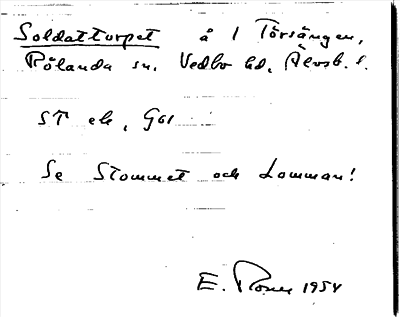 Soldattorpet å 1 Torsängen,
Rölanda sn. Vedbo hd, Älvsb. l.
ST ek, G01
Se Stommet och Lomman!
E. 1954